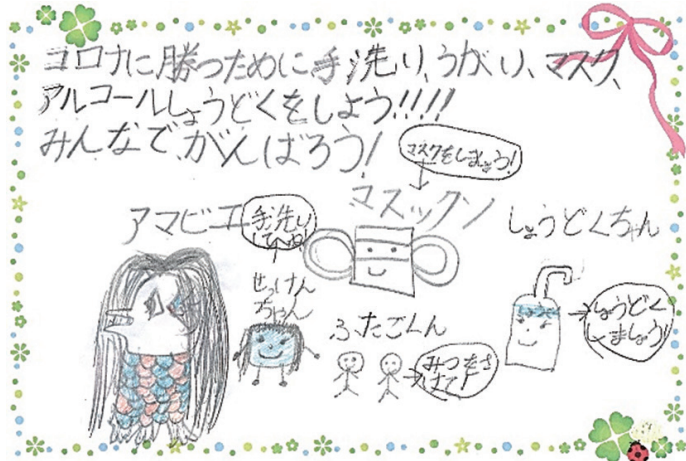 コロナに勝つために手洗り、うがり、マスク、
アルコールしょうどくをしよう!!!!
みんなで、がんばろう!
マスクをしましょう!
マスックン
アマビエ
手洗り
してね!
しょうどくちゃん
せっけん
ちゃん
ふたごくん
みつをさ
けて!
しょうどく
しましょう!